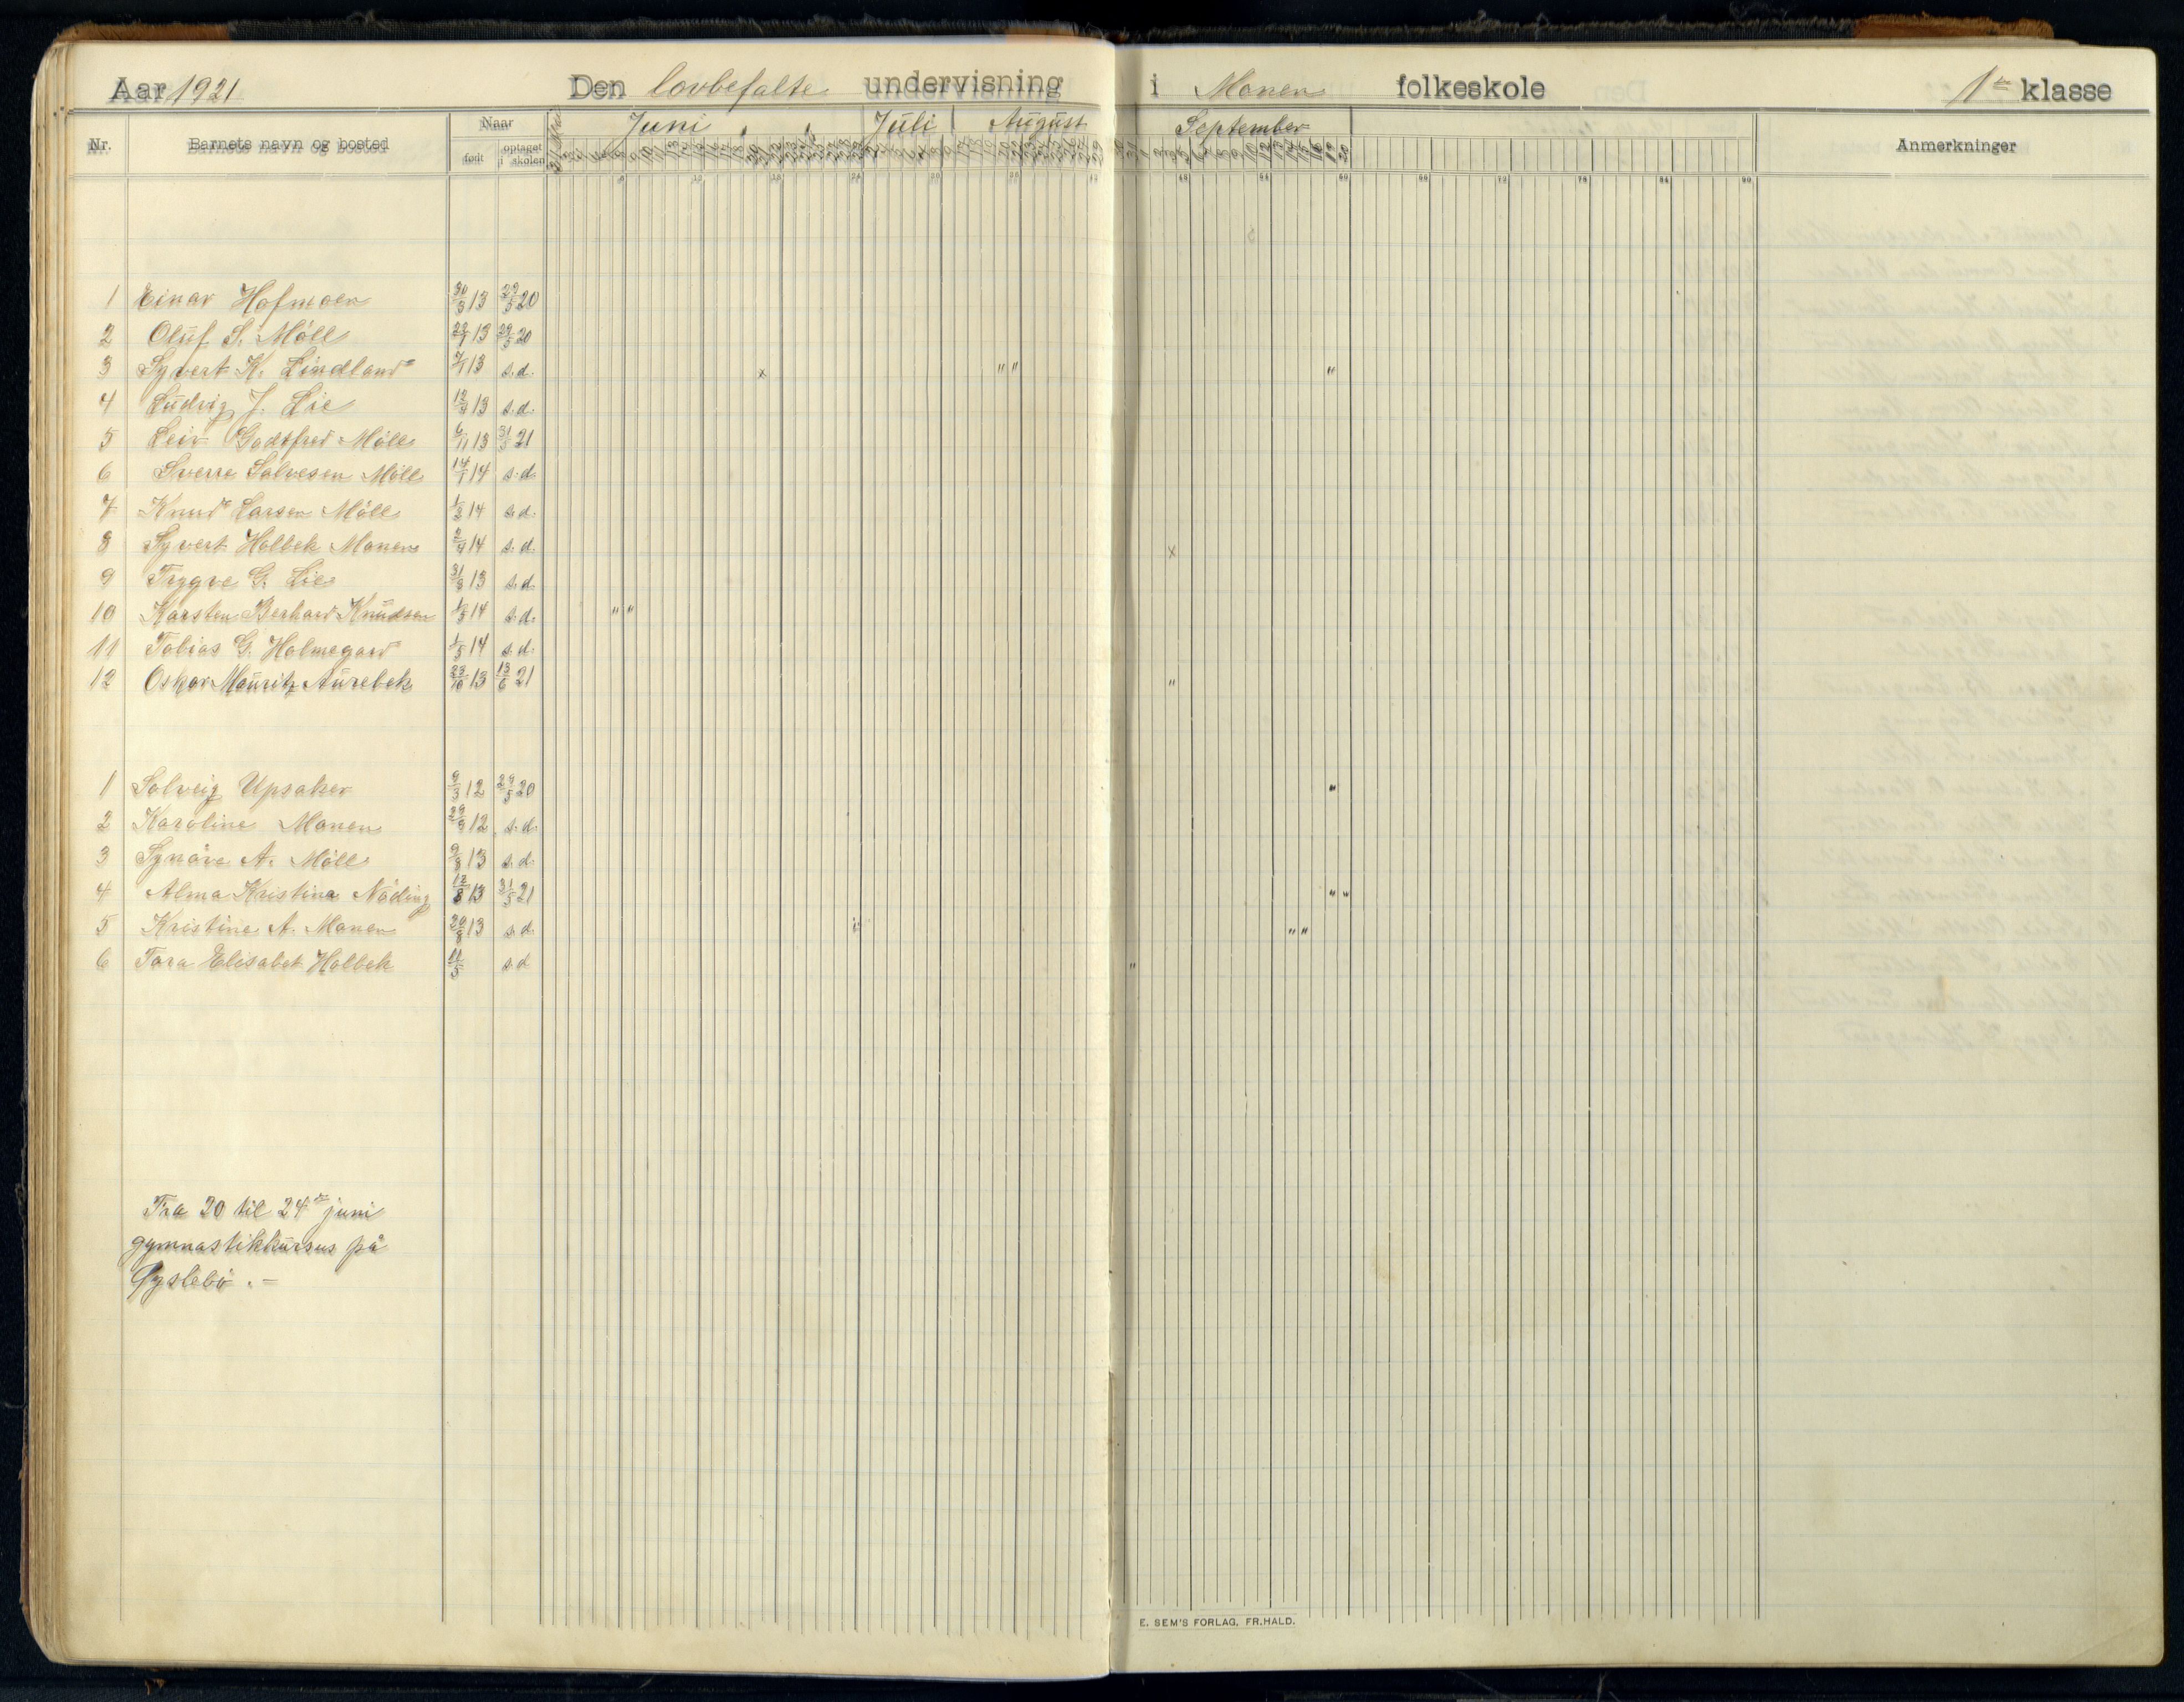 Aar 1921 Den lovbefalte undervisning i Monen folkeskole 1ste klasse
Nr. Barnets navn og bosted Naar Juni Juli August September Anmerkninger
født optaget i skolen
1 Einar Hofmoen 30/3 13 29/5 20
2 Oluf S. Möll 22/7 13 29/5 20
3 Syvert K. Lindland 7/1 13 s.d. x " " "
4 Ludvig J. Lie 12/9 13 s.d.
5 Leiv Godtfred Möll 6/11 13 31/5 21
6 Sverre Salvesen Möll 14/1 14 s.d.
7 Knud Larsen Möll 1/2 14 s.d.
8 Syvert Holbek Monen 2/4 14 s.d. x
9 Trygve G. Lie 31/8 13 s.d.
10 Karsten Berhard Knudsen 1/5 14 s.d. " "
11 Tobias G. Holmegard 1/5 14 s.d.
12 Oskar Mauritz Aurebek 23/10 13 13/6 21 "
1 Solveig Upsaker 9/3 12 29/5 20 "
2 Karoline Monen 29/9 12 s.d.
3 Synöve A. Möll 9/8 13 s.d.
4 Alma Kristina Nöding 12/8 13 31/5 21 " "
5 Kristine A. Monen 20/8 13 s.d. " " "
6 Tora Elisabet Holbek 11/5 s.d "
Fra 20 til 24de juni
gymnastikkursus på
Øyslebö. –
E. SEM'S FORLAG, FR.HALD.